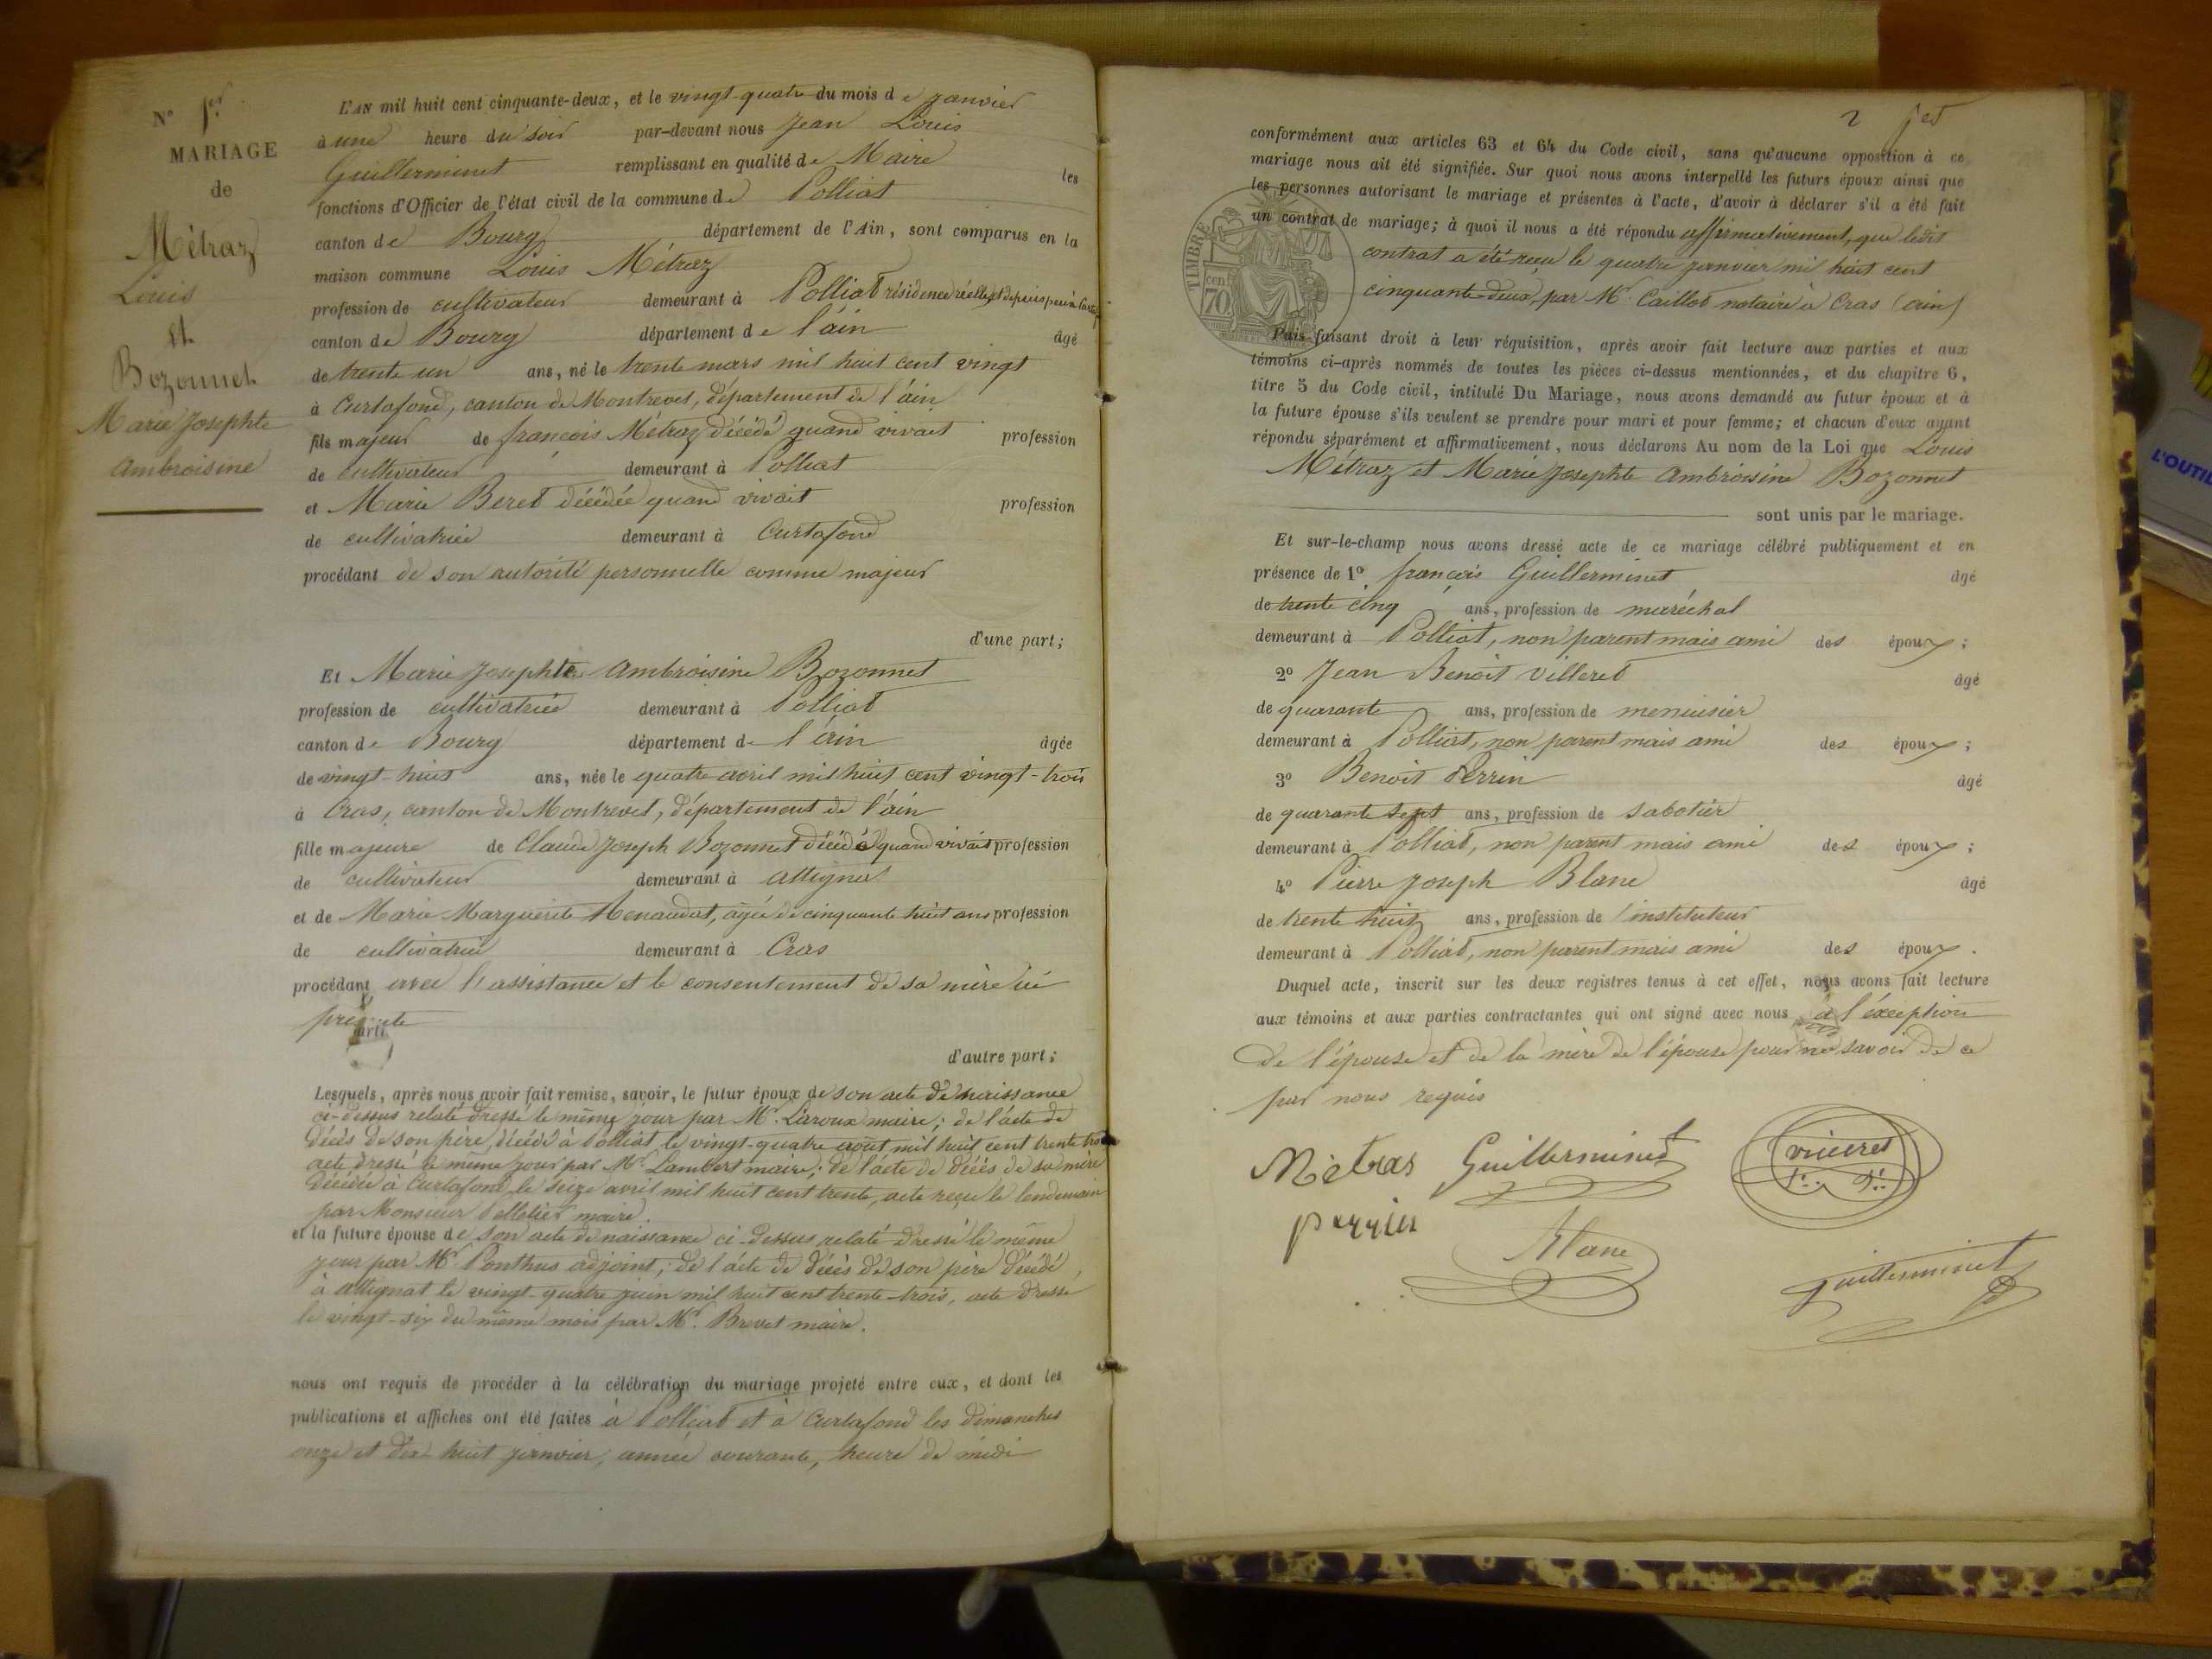 N° 1er
MARIAGE
de
Métraz
Louis
et
Bozonnet
Marie Josephte
Ambroisine
L'AN mil huit cent cinquante-deux, et le vingt-quatre du mois de janvier
à une heure du soir par-devant nous Jean Louis
Guillerminet remplissant en qualité de Maire les
fonctions d'Officier de l'état civil de la commune de Polliat
canton de Bourg département de l'Ain, sont comparus en la
maison commune Louis Métraz
profession de cultivateur demeurant à Polliat résidence réelle, et depuis peu à
canton de Bourg département de l'ain âgé
de trente un ans, né le trente mars mil huit cent vingt
à Curtafond, canton de Montrevel, département de l'ain
fils majeur de françois Métraz décédé quand vivait profession
de cultivateur demeurant à Polliat
et Marie Beret décédée quand vivait profession
de cultivatrice demeurant à Curtafond
procédant de son autorité personnelle comme majeur
d'une part;
Et Marie Josephte Ambroisine Bozonnet
profession de cultivatrice demeurant à Polliat
canton de Bourg département de l'ain âgée
de vingt-huit ans, née le quatre avril mil huit cent vingt-trois
à Cras, canton de Montrevel, département de l'ain
fille majeure de Claude Joseph Bozonnet décédé quand vivait profession
de cultivateur demeurant à Attignat
et de Marie Marguerite Renaudat, âgée de cinquante huit ans profession
de cultivatrice demeurant à Cras
procédant avec l'assistance et le consentement de sa mère ici
présente
d'autre part;
Lesquels, après nous avoir fait remise, savoir, le futur époux de son acte de naissance
ci-dessus relaté dressé le même jour par Mr. Laroux maire; de l'acte de
décès de son père, décédé à Polliat le vingt-quatre août mil huit cent trente trois
acte dressé le même jour par Mr. Lambert maire; de l'acte de décès de sa mère
décédée à Curtafond le seize avril mil huit cent trente, acte reçu le lendemain
par Monsieur Pelletier maire.
et la future épouse de son acte de naissance ci-dessus relaté dressé le même
jour par Mr. Ponthus adjoint; de l'acte de décès de son père décédé,
à Attignat le vingt-quatre juin mil huit cent trente-trois, acte dressé
le vingt-six du même mois par Mr. Brevet maire.
nous ont requis de procéder à la célébration du mariage projeté entre eux, et dont les
publications et affiches ont été faites à Polliat et à Curtafond les dimanches
onze et dix-huit janvier, année courante, heure de midi
2
conformément aux articles 63 et 64 du Code civil, sans qu'aucune opposition à ce
mariage nous ait été signifiée. Sur quoi nous avons interpellé les futurs époux ainsi que
les personnes autorisant le mariage et présentes à l'acte, d'avoir à déclarer s'il a été fait
un contrat de mariage; à quoi il nous a été répondu affirmativement, que ledit
contrat a été reçu le quatre janvier mil huit cent
cinquante-deux, par Mr. Caillot notaire à Cras (ain)
TIMBRE
70 cen
Puis faisant droit à leur réquisition, après avoir fait lecture aux parties et aux
témoins ci-après nommés de toutes les pièces ci-dessus mentionnées, et du chapitre 6,
titre 5 du Code civil, intitulé Du Mariage, nous avons demandé au futur époux et à
la future épouse s'ils veulent se prendre pour mari et pour femme; et chacun d'eux ayant
répondu séparément et affirmativement, nous déclarons Au nom de la Loi que Louis
Métraz et Marie Josephte Ambroisine Bozonnet
sont unis par le mariage.
Et sur-le-champ nous avons dressé acte de ce mariage célébré publiquement et en
présence de 1° françois Guillerminet âgé
de trente cinq ans, profession de maréchal
demeurant à Polliat, non parent mais ami des époux;
2° Jean Benoit Villeret âgé
de quarante ans, profession de menuisier
demeurant à Polliat, non parent mais ami des époux;
3° Benoit Perrin âgé
de quarante sept ans, profession de sabotier
demeurant à Polliat, non parent mais ami des époux;
4° Pierre Joseph Blanc âgé
de trente huit ans, profession de instituteur
demeurant à Polliat, non parent mais ami des époux.
Duquel acte, inscrit sur les deux registres tenus à cet effet, nous avons fait lecture
aux témoins et aux parties contractantes qui ont signé avec nous à l'exception
de l'épouse et de la mère de l'épouse pour ne savoir de ce
par nous requis
Métras Guillerminet
perrin
Blanc
Guillerminet
L'OUTIL